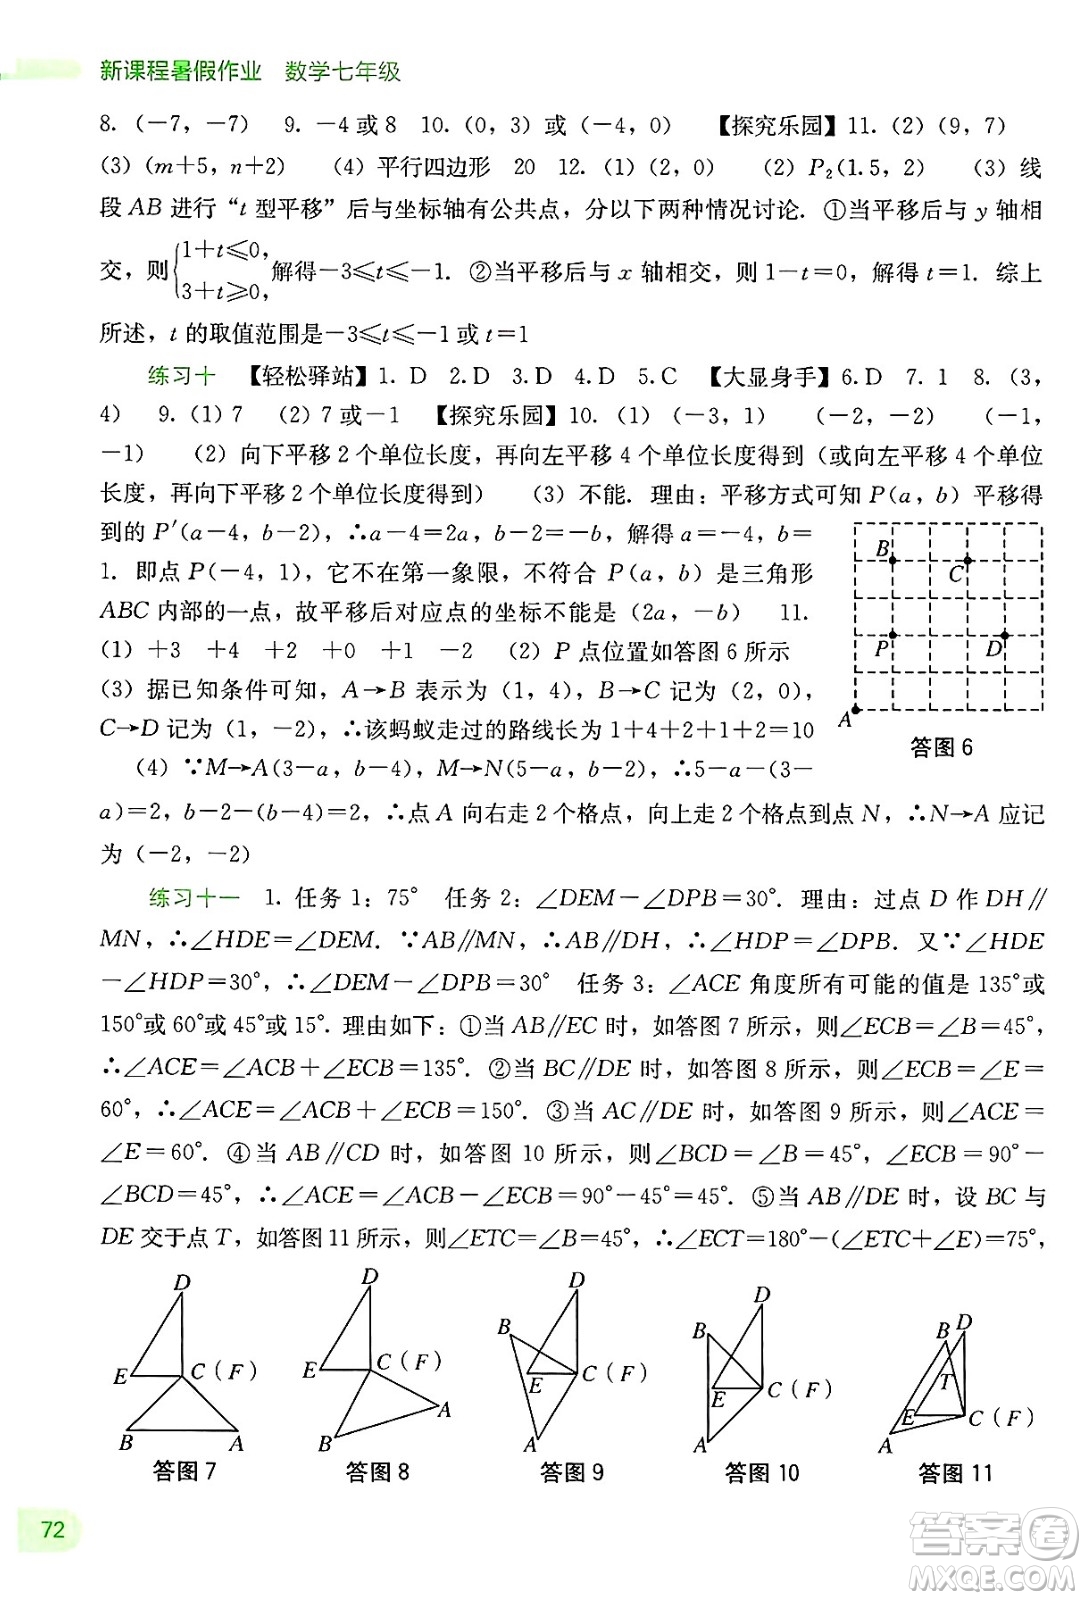 新课程暑假作业 数学七年级
8. (－7，－7) 9. －4或8 10. (0，3) 或 (－4，0) 【探究乐园】11. (2) (9，7)
(3) (m＋5，n＋2) (4) 平行四边形 20 12. (1) (2，0) (2) P₂(1.5，2) (3) 线
段 AB 进行“t 型平移”后与坐标轴有公共点，分以下两种情况讨论. ①当平移后与 y 轴相
交，则{1＋t≤0，3＋t≥0，解得－3≤t≤－1. ②当平移后与 x 轴相交，则 1－t＝0，解得 t＝1. 综上
所述，t 的取值范围是－3≤t≤－1 或 t＝1
练习十 【轻松驿站】1. D 2. D 3. D 4. D 5. C 【大显身手】6. D 7. 1 8. (3，
4) 9. (1) 7 (2) 7 或－1 【探究乐园】10. (1) (－3，1) (－2，－2) (－1，
－1) (2) 向下平移 2 个单位长度，再向左平移 4 个单位长度得到（或向左平移 4 个单位
长度，再向下平移 2 个单位长度得到） (3) 不能. 理由：平移方式可知 P(a，b) 平移得
到的 P′(a－4，b－2)，∴a－4＝2a，b－2＝－b，解得 a＝－4，b＝
1. 即点 P(－4，1)，它不在第一象限，不符合 P(a，b) 是三角形
ABC 内部的一点，故平移后对应点的坐标不能是 (2a，－b) 11.
(1) ＋3 ＋4 ＋2 ＋0 ＋1 －2 (2) P 点位置如答图 6 所示
(3) 据已知条件可知，A→B 表示为 (1，4)，B→C 记为 (2，0)，
C→D 记为 (1，－2)，∴该蚂蚁走过的路线长为 1＋4＋2＋1＋2＝10
B
C
P
D
A
答图 6
(4) ∵M→A(3－a，b－4)，M→N(5－a，b－2)，∴5－a－(3－
a)＝2，b－2－(b－4)＝2，∴点 A 向右走 2 个格点，向上走 2 个格点到点 N，∴N→A 应记
为 (－2，－2)
练习十一 1. 任务 1：75° 任务 2：∠DEM－∠DPB＝30°. 理由：过点 D 作 DH∥
MN，∴∠HDE＝∠DEM. ∵AB∥MN，∴AB∥DH，∴∠HDP＝∠DPB. 又∵∠HDE
－∠HDP＝30°，∴∠DEM－∠DPB＝30° 任务 3：∠ACE 角度所有可能的值是 135°或
150°或 60°或 45°或 15°. 理由如下：①当 AB∥EC 时，如答图 7 所示，则∠ECB＝∠B＝45°，
∴∠ACE＝∠ACB＋∠ECB＝135°. ②当 BC∥DE 时，如答图 8 所示，则∠ECB＝∠E＝
60°，∴∠ACE＝∠ACB＋∠ECB＝150°. ③当 AC∥DE 时，如答图 9 所示，则∠ACE＝
∠E＝60°. ④当 AB∥CD 时，如答图 10 所示，则∠BCD＝∠B＝45°，∴∠BCE＝90°－
∠BCD＝45°，∴∠ACE＝∠ACB－∠ECB＝90°－45°＝45°. ⑤当 AB∥DE 时，设 BC 与
DE 交于点 T，如答图 11 所示，则∠ETC＝∠B＝45°，∴∠ECT＝180°－(∠ETC＋∠E)＝75°，
D
E
C（F）
B
A
答图 7
D
E
C（F）
A
B
答图 8
D
B
E
C（F）
A
答图 9
D
B
E
C（F）
A
答图 10
D
B
T
E
C（F）
A
答图 11
72
答案卷
MXQE.COM